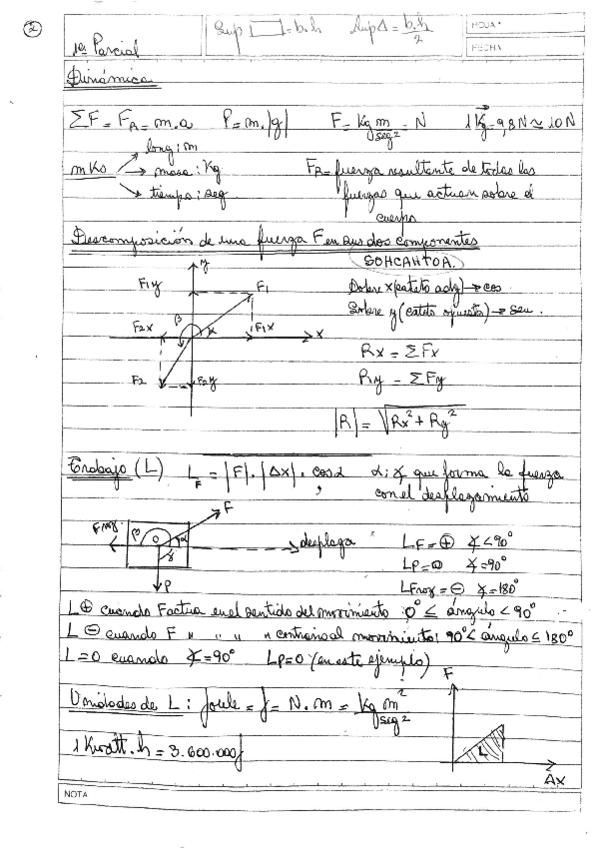 2
Sup ▭ = b.h   Sup Δ = b.h/2
HOJA N°
FECHA
1er Parcial
Dinámica
ΣF = FR = m.a   P = m.|g|   F = Kg m/seg² = N   1 Kg = 9,8 N ≃ 10 N
mks → long: m
→ masa: Kg
→ tiempo: seg
FR = fuerza resultante de todas las
fuerzas que actuan sobre el
cuerpo
Descomposición de una fuerza F en sus dos componentes
SOHCAHTOA.
Sobre x (cateto ady) → cos
Sobre y (cateto opuesto) → sen.
y
F1y
F1
β
α
F2x
F1x
x
F2
F2y
Rx = ΣFx
Ry = ΣFy
|R| = √Rx² + Ry²
Trabajo (L)   L F = |F| . |Δx| . cos α   α: ∡ que forma la fuerza
con el desplazamiento
F
Froz
β
α
γ
desplaza
P
LF = ⊕ ∡ < 90°
LP = 0 ∡ = 90°
LFroz = ⊖ ∡ = 180°
L ⊕ cuando F actua en el sentido del movimiento 0° ≤ ángulo < 90°
L ⊖ cuando F " " " " contrario al movimiento: 90° < ángulo ≤ 180°
L = 0 cuando ∡ = 90°   LP = 0 (en este ejemplo)
F
Unidades de L: Joule = J = N.m = Kg m²/seg²
1 Kwatt.h = 3.600.000 J
L
Δx
NOTA